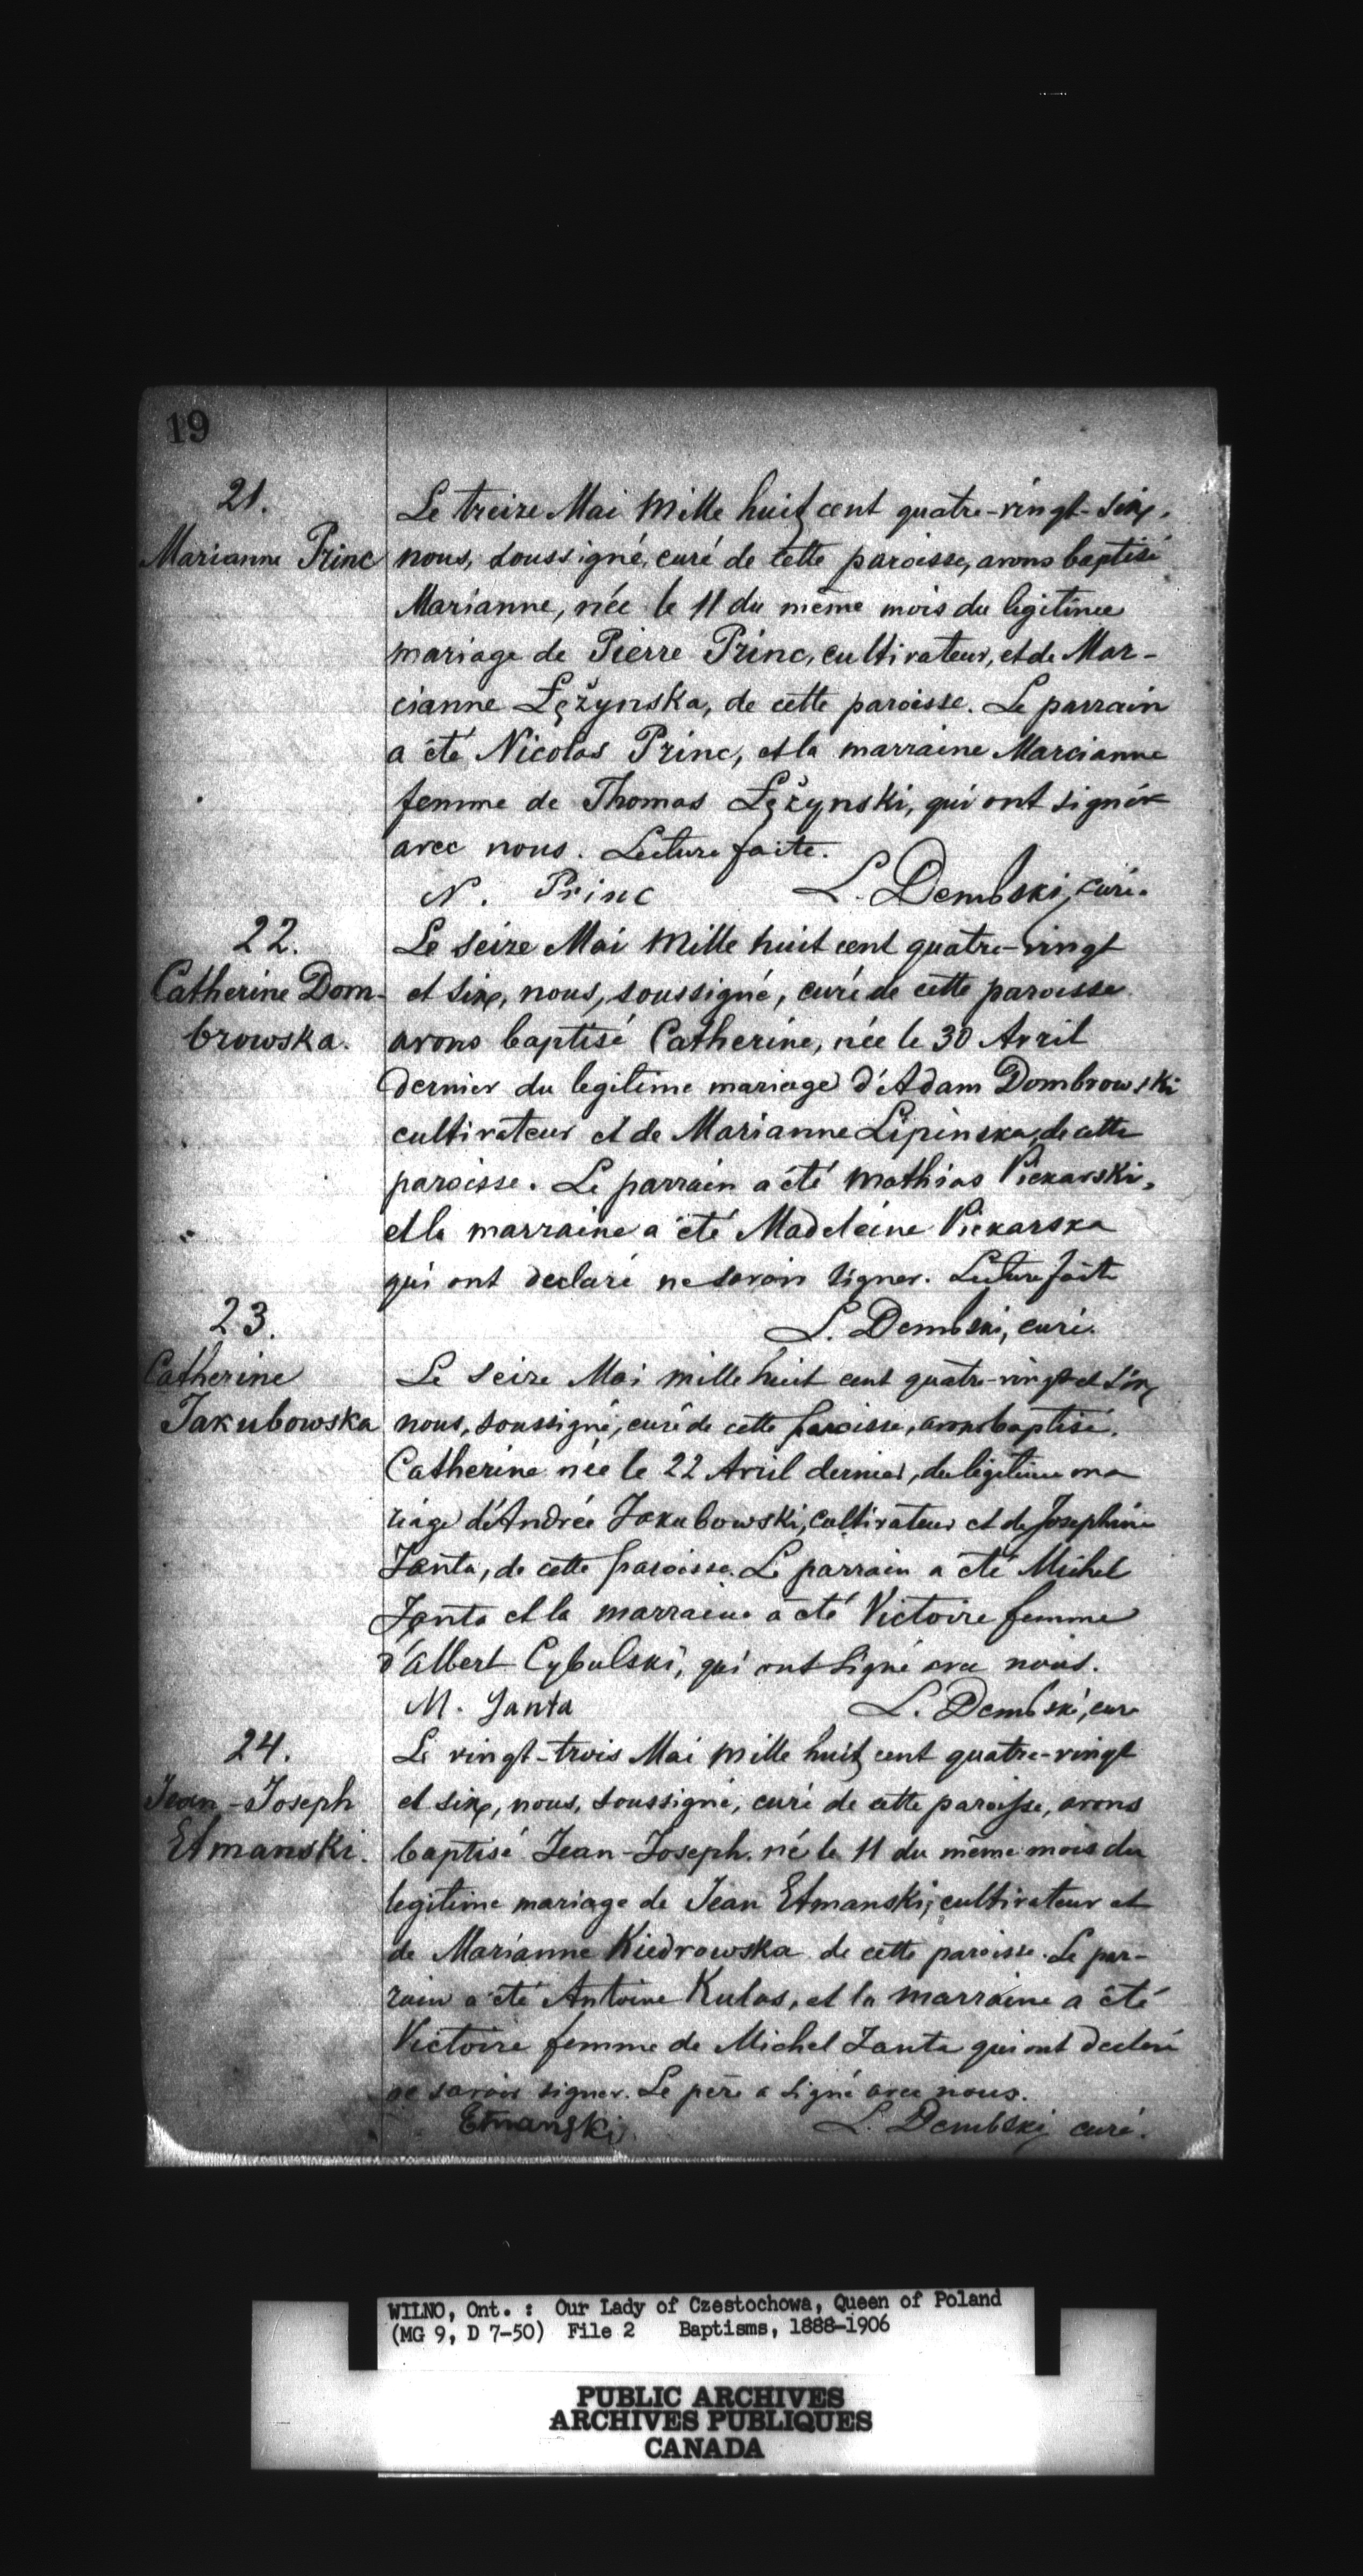 19
21.
Marianne Princ
Le treize Mai mille huit cent quatre-vingt-six,
nous, soussigné, curé de cette paroisse, avons baptisé
Marianne, née le 11 du même mois du legitime
mariage de Pierre Princ, cultivateur, et de Mar-
cianne Łężynska, de cette paroisse. Le parrain
a été Nicolas Princ, et la marraine Marcianne
femme de Thomas Łężynski, qui ont signé
avec nous. Lecture faite.
N. Princ L. Dembski, curé.
22.
Catherine Dom-
browska.
Le seize Mai mille huit cent quatre-vingt
et six, nous, soussigné, curé de cette paroisse
avons baptisé Catherine, née le 30 Avril
dernier du legitime mariage d'Adam Dombrowski
cultivateur et de Marianne Lipinska, de cette
paroisse. Le parrain a été Mathias Piekarski,
et la marraine a été Madeleine Piekarska
qui ont declaré ne savoir signer. Lecture faite
L. Dembski, curé.
23.
Catherine
Jakubowska
Le seize Mai mille huit cent quatre-vingt et six
nous, soussigné, curé de cette paroisse, avons baptisé.
Catherine née le 22 Avril dernier, du legitime ma
riage d'Andrée Jakubowski, cultivateur et de Josephine
Janta, de cette paroisse. Le parrain a été Michel
Janta et la marraine a été Victoire femme
d'Albert Cybulski, qui ont signé avec nous.
M. Janta L. Dembski, curé
24.
Jean-Joseph
Etmanski.
Le vingt-trois Mai mille huit cent quatre-vingt
et six, nous, soussigné, curé de cette paroisse, avons
baptisé Jean-Joseph. né le 11 du même mois du
legitime mariage de Jean Etmanski, cultivateur et
de Marianne Kiedrowska de cette paroisse. Le par-
rain a été Antoine Kulas, et la marraine a été
Victoire femme de Michel Janta qui ont declaré
ne savoir signer. Le père a signé avec nous.
Etmanski. L. Dembski curé.
WILNO, Ont. : Our Lady of Czestochowa, Queen of Poland
(MG 9, D 7-50) File 2 Baptisms, 1888-1906
PUBLIC ARCHIVES
ARCHIVES PUBLIQUES
CANADA